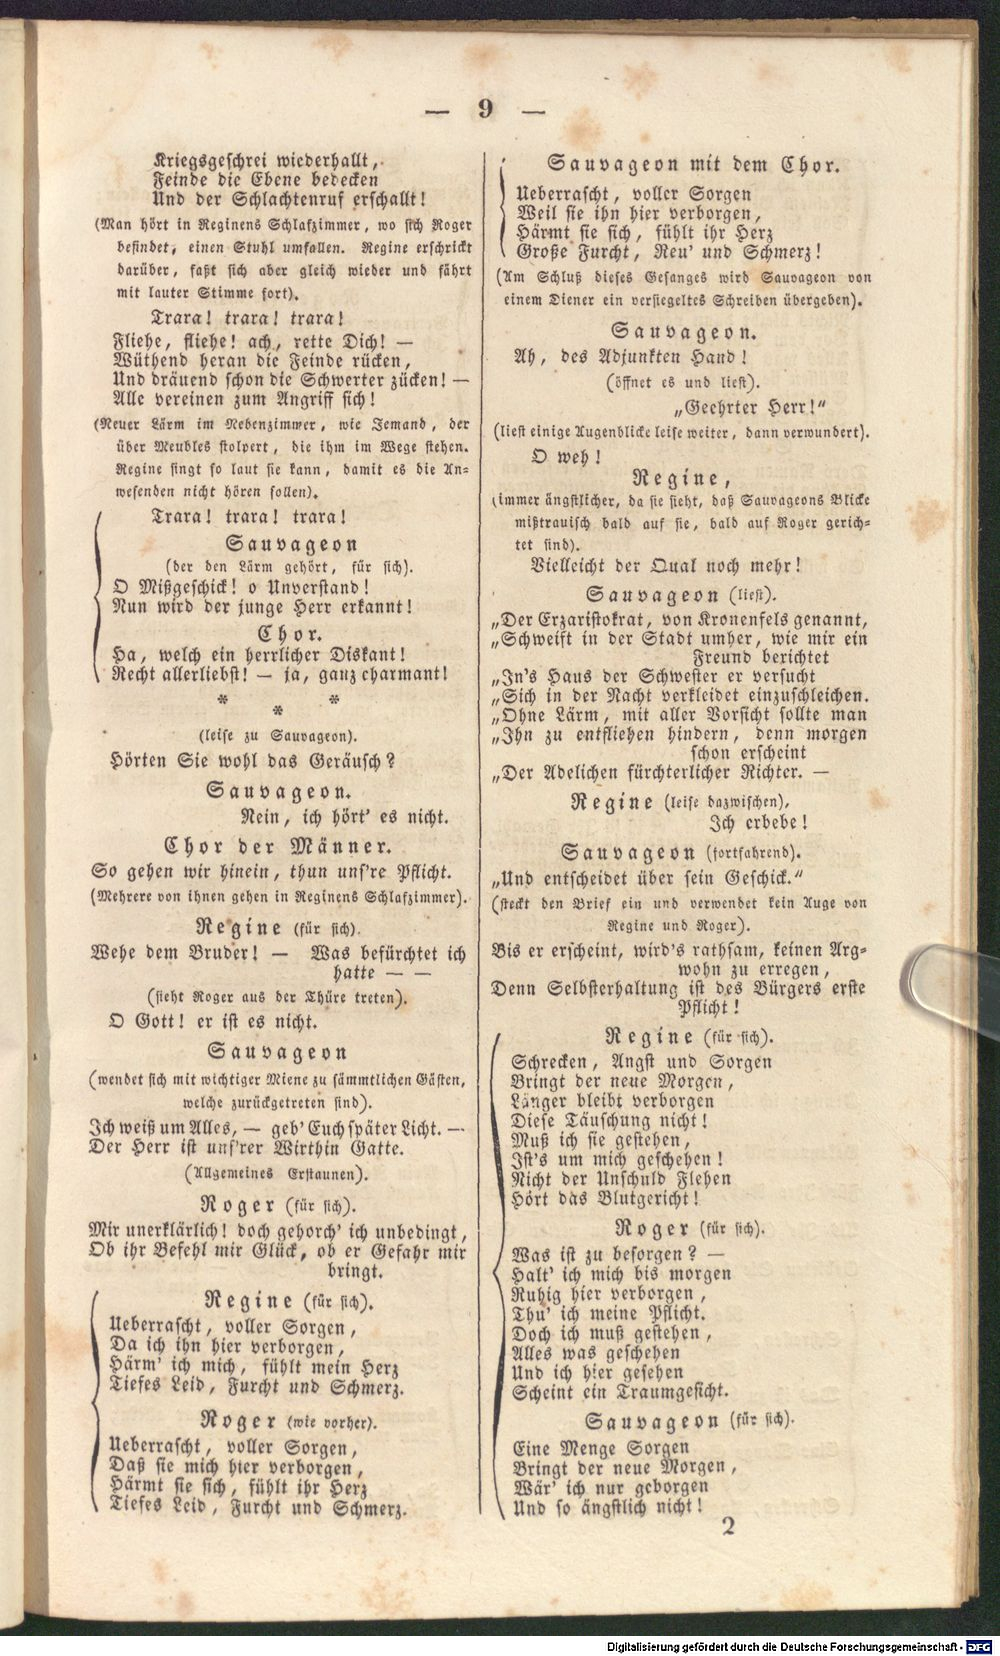 — 9 —
Kriegsgeschrei wiederhallt,
Feinde die Ebene bedecken
Und der Schlachtenruf erschallt!
(Man hört in Reginens Schlafzimmer, wo sich Roger
befindet, einen Stuhl umfallen. Regine erschrickt
darüber, faßt sich aber gleich wieder und fährt
mit lauter Stimme fort).
Trara! trara! trara!
Fliehe, fliehe! ach, rette Dich! —
Wüthend heran die Feinde rücken,
Und dräuend schon die Schwerter zücken! —
Alle vereinen zum Angriff sich!
(Neuer Lärm im Nebenzimmer, wie Jemand, der
über Meubles stolpert, die ihm im Wege stehen.
Regine singt so laut sie kann, damit es die An-
wesenden nicht hören sollen).
Trara! trara! trara!
Sauvageon
(der den Lärm gehört, für sich).
O Mißgeschick! o Unverstand!
Nun wird der junge Herr erkannt!
Chor.
Ha, welch ein herrlicher Diskant!
Recht allerliebst! — ja, ganz charmant!
* * *
(leise zu Sauvageon).
Hörten Sie wohl das Geräusch?
Sauvageon.
Nein, ich hört' es nicht.
Chor der Männer.
So gehen wir hinein, thun uns're Pflicht.
(Mehrere von ihnen gehen in Reginens Schlafzimmer).
Regine (für sich).
Wehe dem Bruder! — Was befürchtet ich
hatte — —
(sieht Roger aus der Thüre treten).
O Gott! er ist es nicht.
Sauvageon
(wendet sich mit wichtiger Miene zu sämmtlichen Gästen,
welche zurückgetreten sind).
Ich weiß um Alles, — geb' Euch später Licht. —
Der Herr ist uns'rer Wirthin Gatte.
(Allgemeines Erstaunen).
Roger (für sich).
Mir unerklärlich! doch gehorch' ich unbedingt,
Ob ihr Befehl mir Glück, ob er Gefahr mir
bringt.
Regine (für sich).
Ueberrascht, voller Sorgen,
Da ich ihn hier verborgen,
Härm' ich mich, fühlt mein Herz
Tiefes Leid, Furcht und Schmerz.
Roger (wie vorher).
Ueberrascht, voller Sorgen,
Daß sie mich hier verborgen,
Härmt sie sich, fühlt ihr Herz
Tiefes Leid, Furcht und Schmerz.
Sauvageon mit dem Chor.
Ueberrascht, voller Sorgen
Weil sie ihn hier verborgen,
Härmt sie sich, fühlt ihr Herz
Große Furcht, Reu' und Schmerz!
(Am Schluß dieses Gesanges wird Sauvageon von
einem Diener ein versiegeltes Schreiben übergeben).
Sauvageon.
Ah, des Adjunkten Hand!
(öffnet es und liest).
„Geehrter Herr!“
(liest einige Augenblicke leise weiter, dann verwundert).
O weh!
Regine,
(immer ängstlicher, da sie sieht, daß Sauvageons Blicke
mißtrauisch bald auf sie, bald auf Roger gerich-
tet sind).
Vielleicht der Qual noch mehr!
Sauvageon (liest).
„Der Erzaristokrat, von Kronenfels genannt,
„Schweift in der Stadt umher, wie mir ein
Freund berichtet
„In's Haus der Schwester er versucht
„Sich in der Nacht verkleidet einzuschleichen.
„Ohne Lärm, mit aller Vorsicht sollte man
„Ihn zu entfliehen hindern, denn morgen
schon erscheint
„Der Adelichen fürchterlicher Richter. —
Regine (leise dazwischen),
Ich erbebe!
Sauvageon (fortfahrend).
„Und entscheidet über sein Geschick.“
(steckt den Brief ein und verwendet kein Auge von
Regine und Roger).
Bis er erscheint, wird's rathsam, keinen Arg-
wohn zu erregen,
Denn Selbsterhaltung ist des Bürgers erste
Pflicht!
Regine (für sich).
Schrecken, Angst und Sorgen
Bringt der neue Morgen,
Länger bleibt verborgen
Diese Täuschung nicht!
Muß ich sie gestehen,
Ist's um mich geschehen!
Nicht der Unschuld Flehen
Hört das Blutgericht!
Roger (für sich).
Was ist zu besorgen? —
Halt' ich mich bis morgen
Ruhig hier verborgen,
Thu' ich meine Pflicht.
Doch ich muß gestehen,
Alles was geschehen
Und ich hier gesehen
Scheint ein Traumgesicht.
Sauvageon (für sich).
Eine Menge Sorgen
Bringt der neue Morgen,
Wär' ich nur geborgen
Und so ängstlich nicht!
2
Digitalisierung gefördert durch die Deutsche Forschungsgemeinschaft - DFG